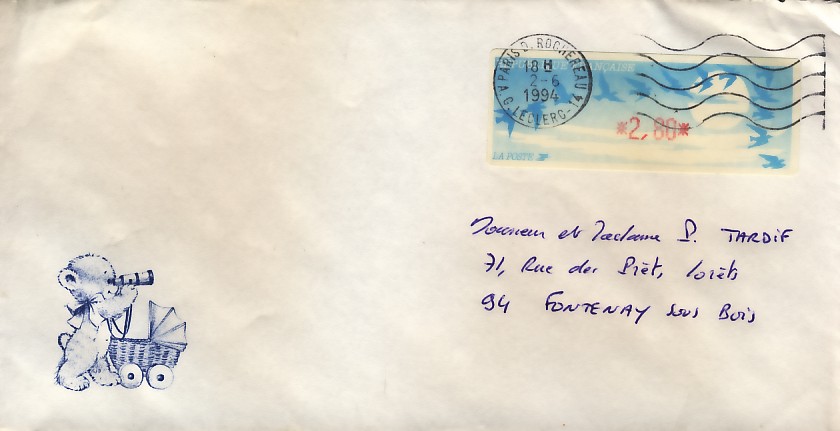 PARIS D. ROCHEREAU
18 H
2-6
1994
AV. G. LECLERC-14
RÉPUBLIQUE FRANÇAISE
*2,80*
LA POSTE
Monsieur et Madame P. TARDIF
71, Rue des
94 FONTENAY sous Bois